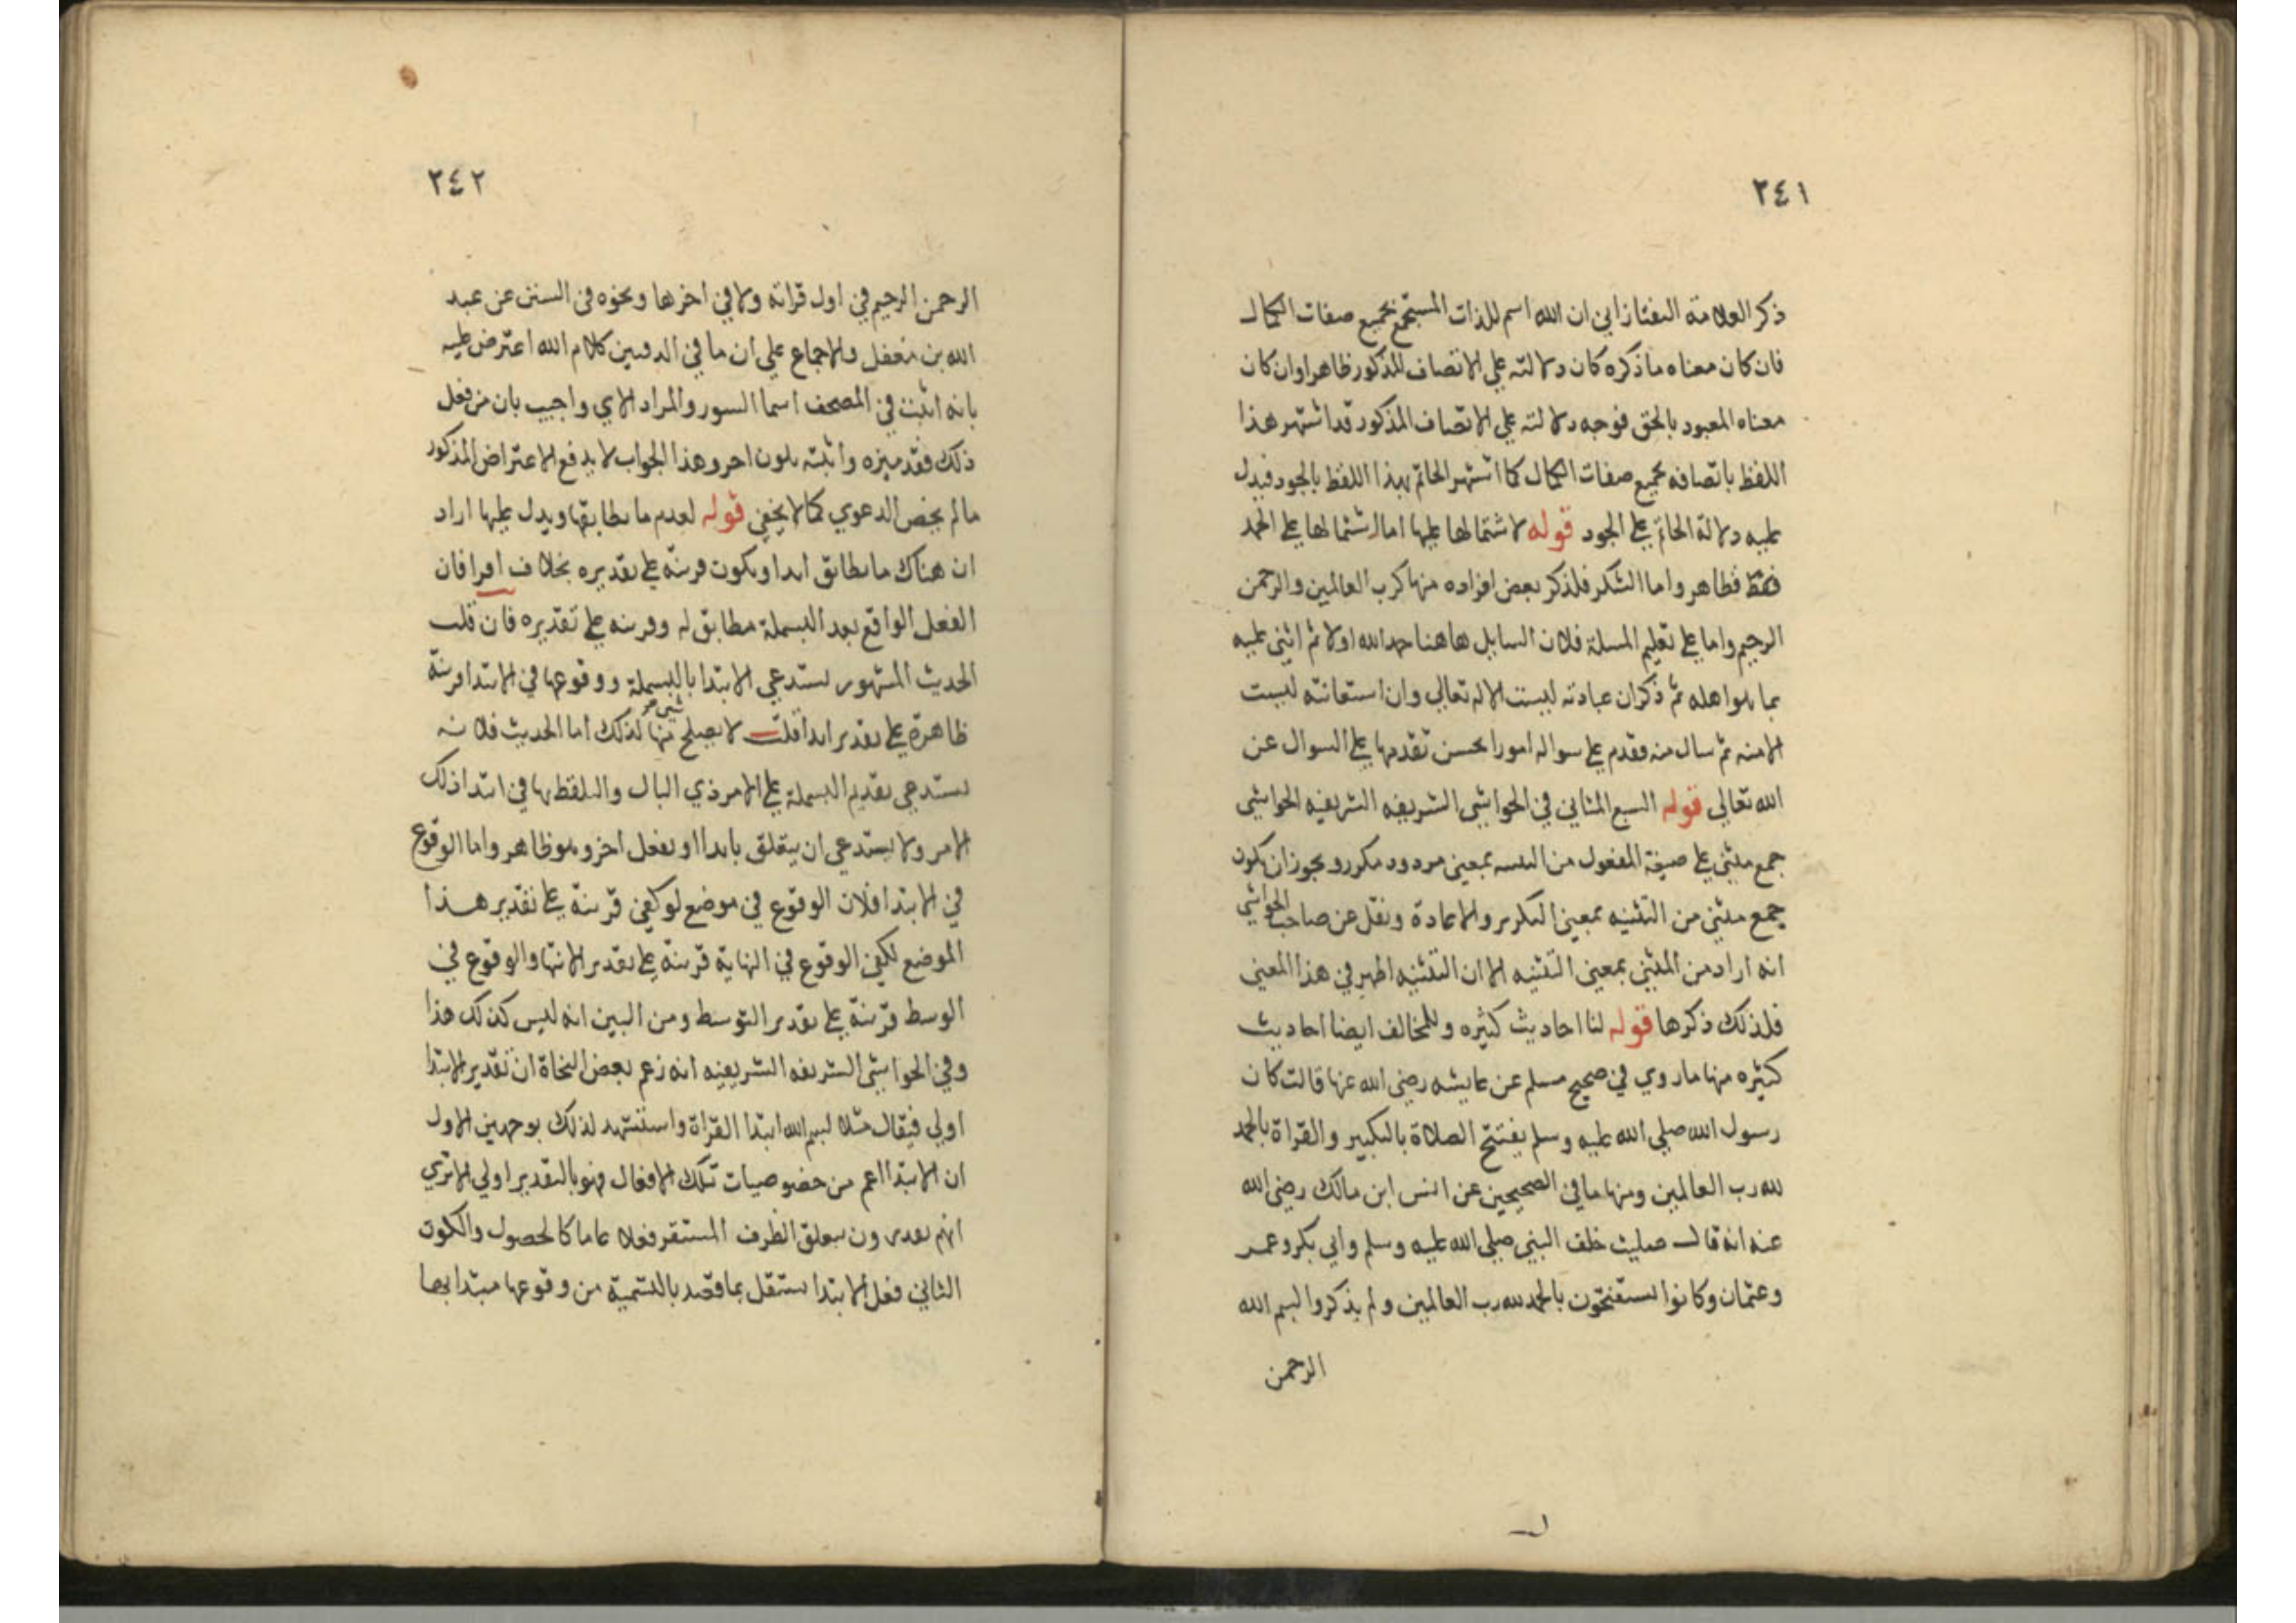 ٢٤١
ذكر العلامة التفتازاني ان الله اسم للذات المستجمع بجميع صفات الكمال
فان كان معناه ما ذكره كان دلالته علي الاتصاف المذكور ظاهرا وان كان
معناه المعبود بالحق فوجه دلالته علي الاتصاف المذكور قد اشتهر هذا
اللفظ باتصافه بجميع صفات الكمال كما اشتهر الحاتم بهذا اللفظ بالجود فيدل
عليه دلالة الحاتم علي الجود قوله لاشتمالها عليها اما اشتمالها علي الحمد
فقط فظاهر واما الشكر فلذكر بعض افراده منها كرب العالمين والرحمن
الرحيم واما علي تعليم المسلة فلان السايل هاهنا حمد الله اولا ثم اثني عليه
بما هو اهله ثم ذكر ان عبادته ليست الا له تعالي وان استعانته ليست
الا منه ثم سال منه فقدم علي سواله امورا يحسن تقدمها علي السوال عن
الله تعالي قوله السبع المثاني في الحواشي الشريفه الشريفيه الحواشي
جمع مثني علي صيغة المفعول من التثنيه بمعني مردود مكرر ويجوز ان يكون
جمع مثني من التثنيه بمعني التكرير والاعادة ونقل عن صاحب الحواشي
انه اراد من المثني بمعني التثنيه الا ان التثنيه اظهر في هذا المعني
فلذلك ذكرها قوله لنا احاديث كثيره وللمخالف ايضا احاديث
كثيره منها ما روي في صحيح مسلم عن عايشه رضي الله عنها قالت كان
رسول الله صلي الله عليه وسلم يفتتح الصلاة بالتكبير والقراة بالحمد
لله رب العالمين ومنها ما في الصحيحين عن انس ابن مالك رضي الله
عنه انه قال صليت خلف النبي صلي الله عليه وسلم وابي بكر وعمر
وعثمان وكانوا يستفتحون بالحمد لله رب العالمين ولم يذكروا بسم الله
الرحمن
٢٤٢
الرحمن الرحيم في اول قراته ولا في اخرها ونحوه في السنن عن عبد
الله بن مغفل والاجماع علي ان ما في الدفتين كلام الله اعترض عليه
بانه اثبت في المصحف اسما السور والمراد الاي واجيب بان من فعل
ذلك فقد ميزه واثبته بلون اخر وهذا الجواب لا يدفع الاعتراض المذكور
ما لم يخص الدعوي كما لا يخفي قوله لعدم ما يطابقها ويدل عليها اراد
ان هناك ما يطابق ابدا ويكون قرينة علي تقديره بخلاف اقرا فان
الفعل الواقع بعد البسملة مطابق له وقرينه علي تقديره فان قلت
الحديث المشهور يستدعي الابتدا بالبسملة ووقوعها في الابتدا قرينة
ظاهرة علي تقدير ابدا قلت لا يصلح شي منها لذلك اما الحديث فلانه
يستدعي تقديم البسملة علي الامر ذي البال والتلفظ بها في ابتدا ذلك
الامر ولا يستدعي ان يتعلق بابدا او بفعل اخر وهو ظاهر واما الوقوع
في الابتدا فلان الوقوع في موضع لو كفي قرينة علي تقدير هذا
الموضع لكفي الوقوع في النهاية قرينة علي تقدير الانتها والوقوع في
الوسط قرينة علي تقدير التوسط ومن البين انه ليس كذلك هذا
وفي الحواشي الشريفه الشريفيه انه زعم بعض النحاة ان تقدير الابتدا
اولي فيقال مثلا بسم الله ابتدا القراة واستشهد لذلك بوجهين الاول
ان الابتدا اعم من خصوصيات تلك الافعال فهو بالتقدير اولي الا تري
انهم يقدرون متعلق الظرف المستقر فعلا عاما كالحصول والكون
الثاني فعل الابتدا يستقل بما قصد بالتسمية من وقوعها مبتدا بها